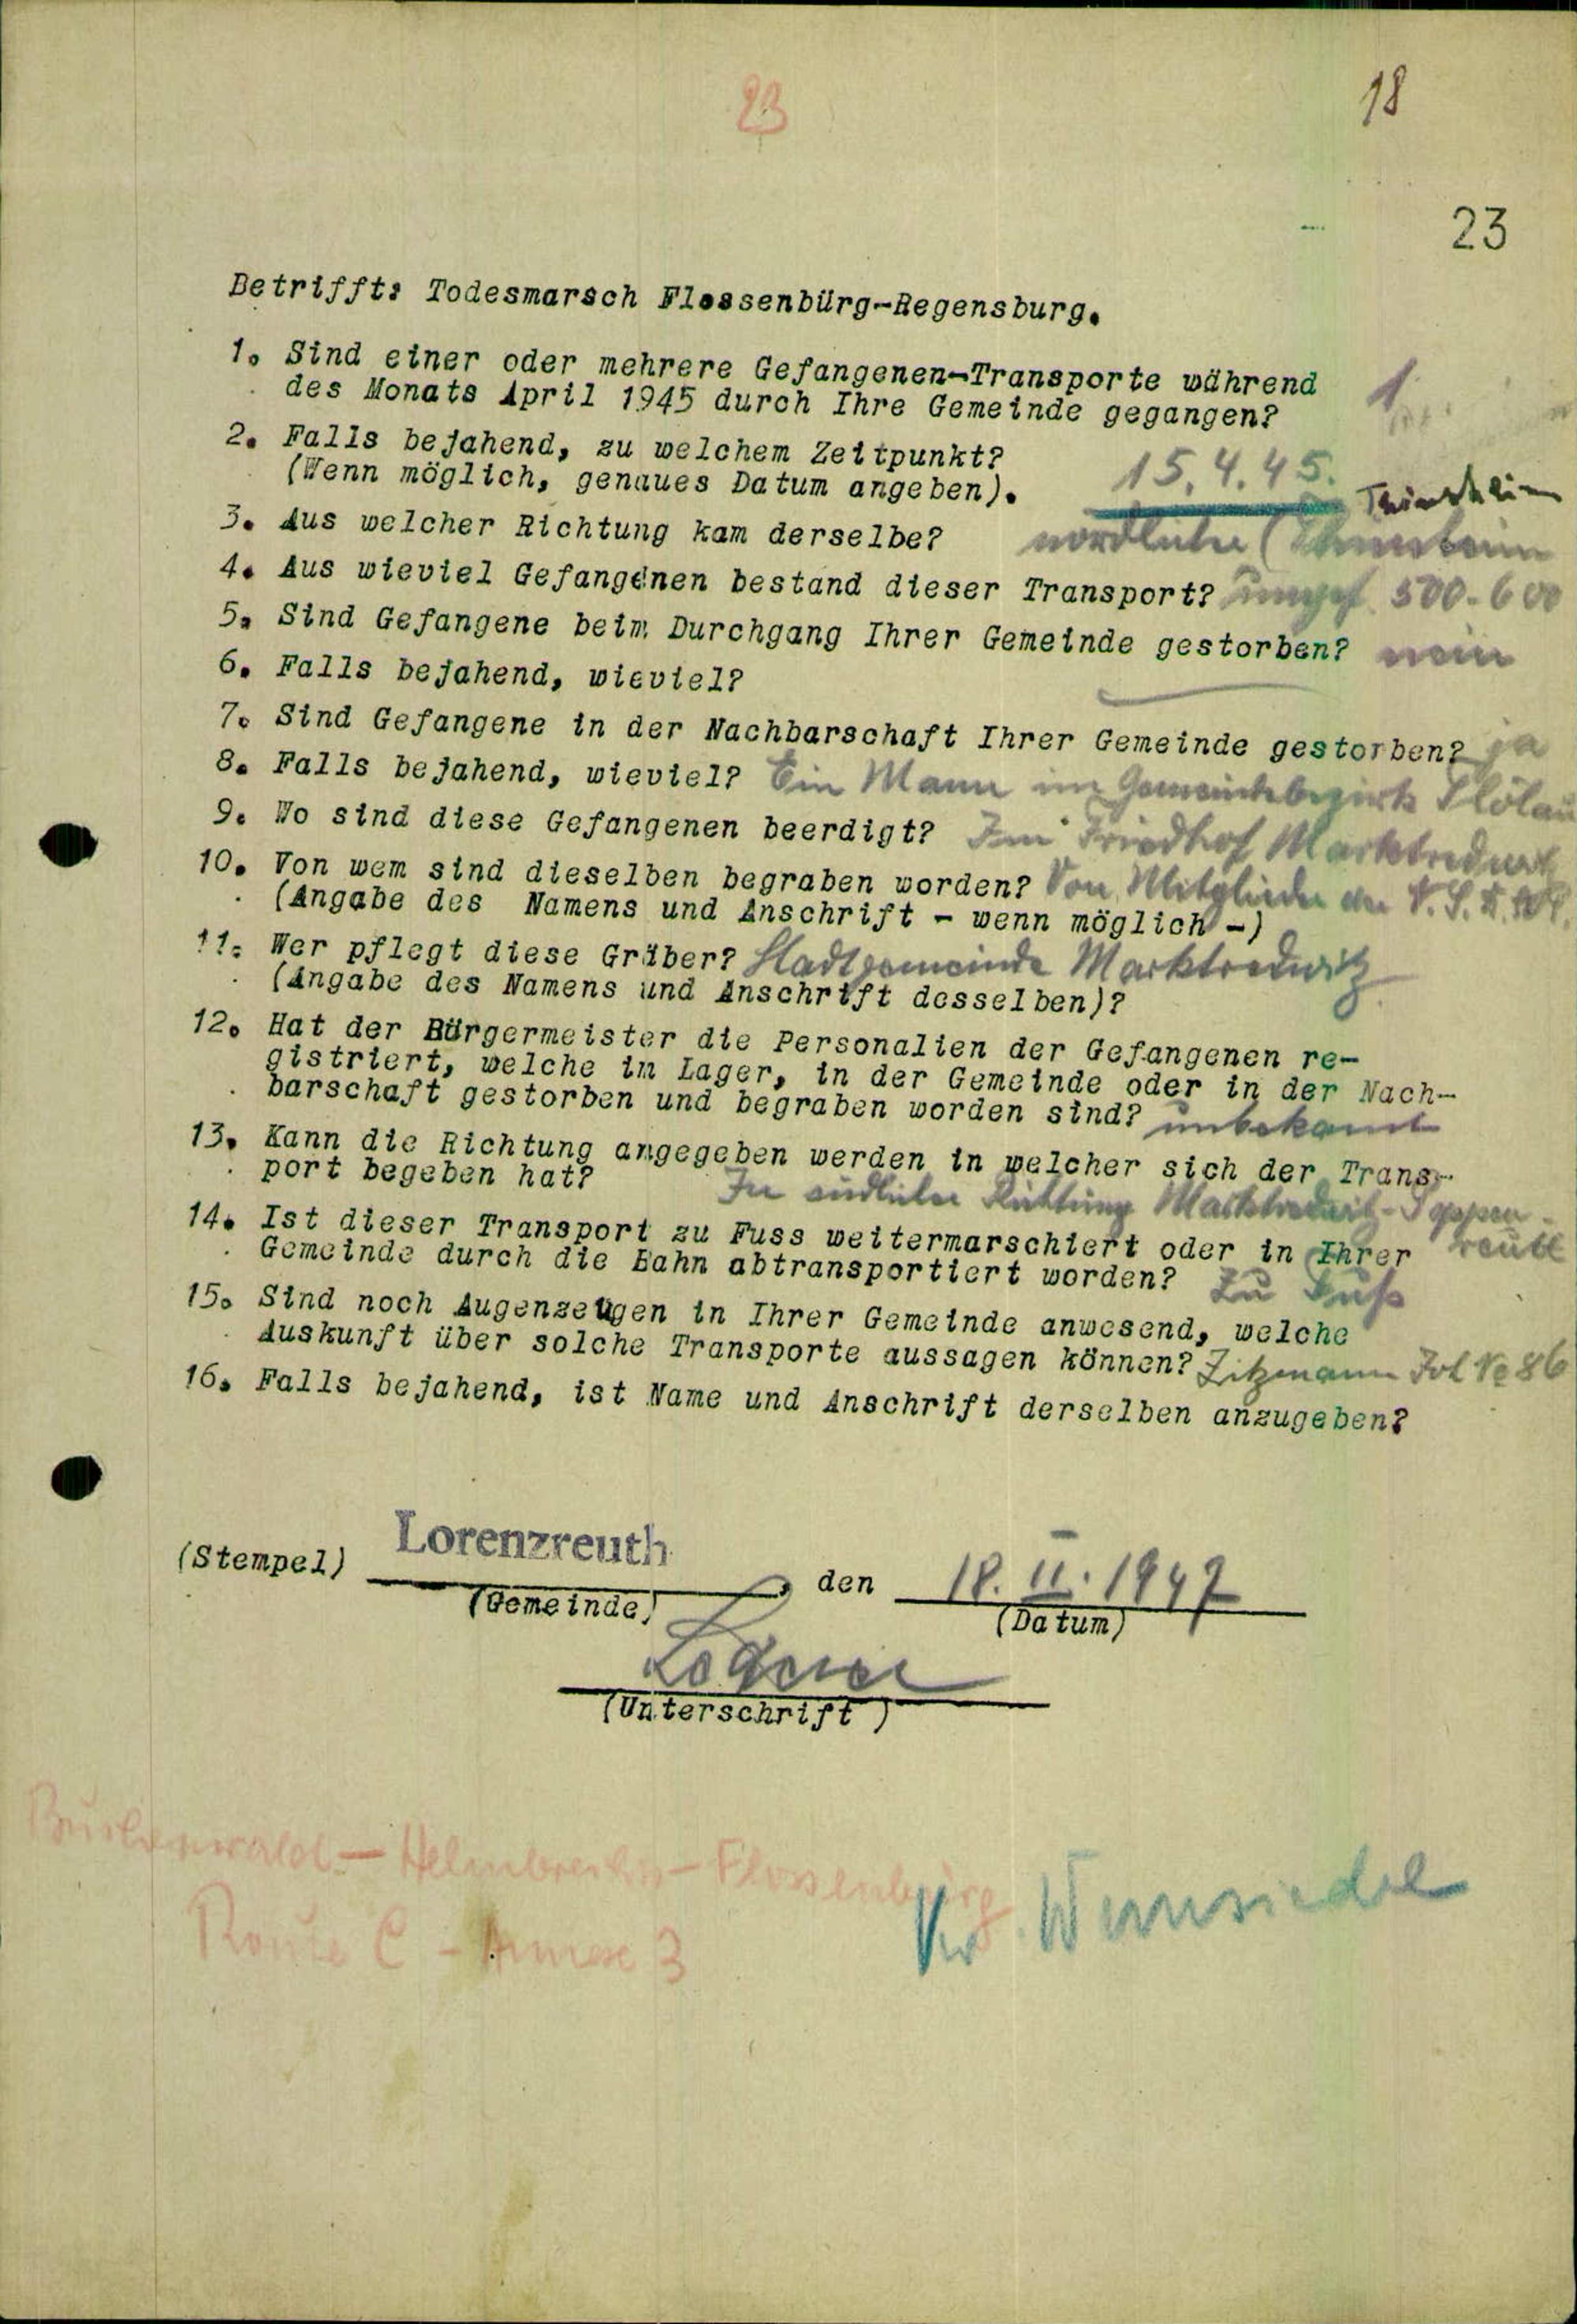 23
18
23
Betrifft: Todesmarsch Flossenbürg-Regensburg.
1. Sind einer oder mehrere Gefangenen-Transporte während
des Monats April 1945 durch Ihre Gemeinde gegangen? 1
2. Falls bejahend, zu welchem Zeitpunkt?
(Wenn möglich, genaues Datum angeben). 15.4.45.
3. Aus welcher Richtung kam derselbe? nördlicher (
4. Aus wieviel Gefangenen bestand dieser Transport? ungef. 500-600
5. Sind Gefangene beim Durchgang Ihrer Gemeinde gestorben? nein
6. Falls bejahend, wieviel? —
7. Sind Gefangene in der Nachbarschaft Ihrer Gemeinde gestorben? ja
8. Falls bejahend, wieviel? Ein Mann im Gemeindebezirk
9. Wo sind diese Gefangenen beerdigt? Im Friedhof Marktredwitz
10. Von wem sind dieselben begraben worden? Von Mitglieder der N.S.D.A.P.
(Angabe des Namens und Anschrift - wenn möglich -)
11. Wer pflegt diese Gräber? Stadtgemeinde Marktredwitz
(Angabe des Namens und Anschrift desselben)?
12. Hat der Bürgermeister die Personalien der Gefangenen re-
gistriert, welche in Lager, in der Gemeinde oder in der Nach-
barschaft gestorben und begraben worden sind? unbekannt
13. Kann die Richtung angegeben werden in welcher sich der Trans-
port begeben hat? In südlicher Richtung Marktredwitz-
14. Ist dieser Transport zu Fuss weitermarschiert oder in Ihrer reuth
Gemeinde durch die Bahn abtransportiert worden? Zu Fuß
15. Sind noch Augenzeugen in Ihrer Gemeinde anwesend, welche
Auskunft über solche Transporte aussagen können? Zitzmann № 86
16. Falls bejahend, ist Name und Anschrift derselben anzugeben?
(Stempel) Lorenzreuth, den 18. II. 1947
(Gemeinde) (Datum)
(Unterschrift)
Buchenwald — Helmbrechts — Flossenbürg
Route C - Annexe 3
Kr. Wunsiedel